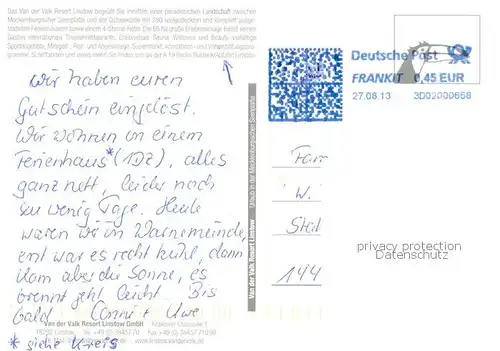 Das Van der Valk Resort Linstow begrüßt Sie inmitten einer paradiesischen Landschaft zwischen
Mecklenburgischer Seenplatte und der Ostseeküste mit 380 vollgedeckten und komplett ausge-
statteten Ferienhäusern sowie einem 4-Sterne Hotel. Die
Gästen internationales
Sportangebote, Minigolf, Supermarkt,
gramme,
Deutsche Post
FRANKIT 0,45 EUR
27.08.13 3D02000658
Wir haben euren
Gutschein eingelöst.
Wir wohnen in einem
Ferienhaus* (1DZ), alles
ganz nett, leider noch
zu wenig Tage. Heute
waren wir in Warnemünde,
erst war es recht kühl, dann
kam aber die Sonne, es
brennt jetzt leicht. Bis
bald Conni + Uwe
* siehe Kreis
Fam
W.
Stei
144
privacy protection
Datenschutz
Van der Valk Resort Linstow
Urlaub in der Mecklenburgischen Seenplatte
Van der Valk Resort Linstow GmbH Krakower Chaussee 1
18292 Linstow
www.linstow.vandervalk.de